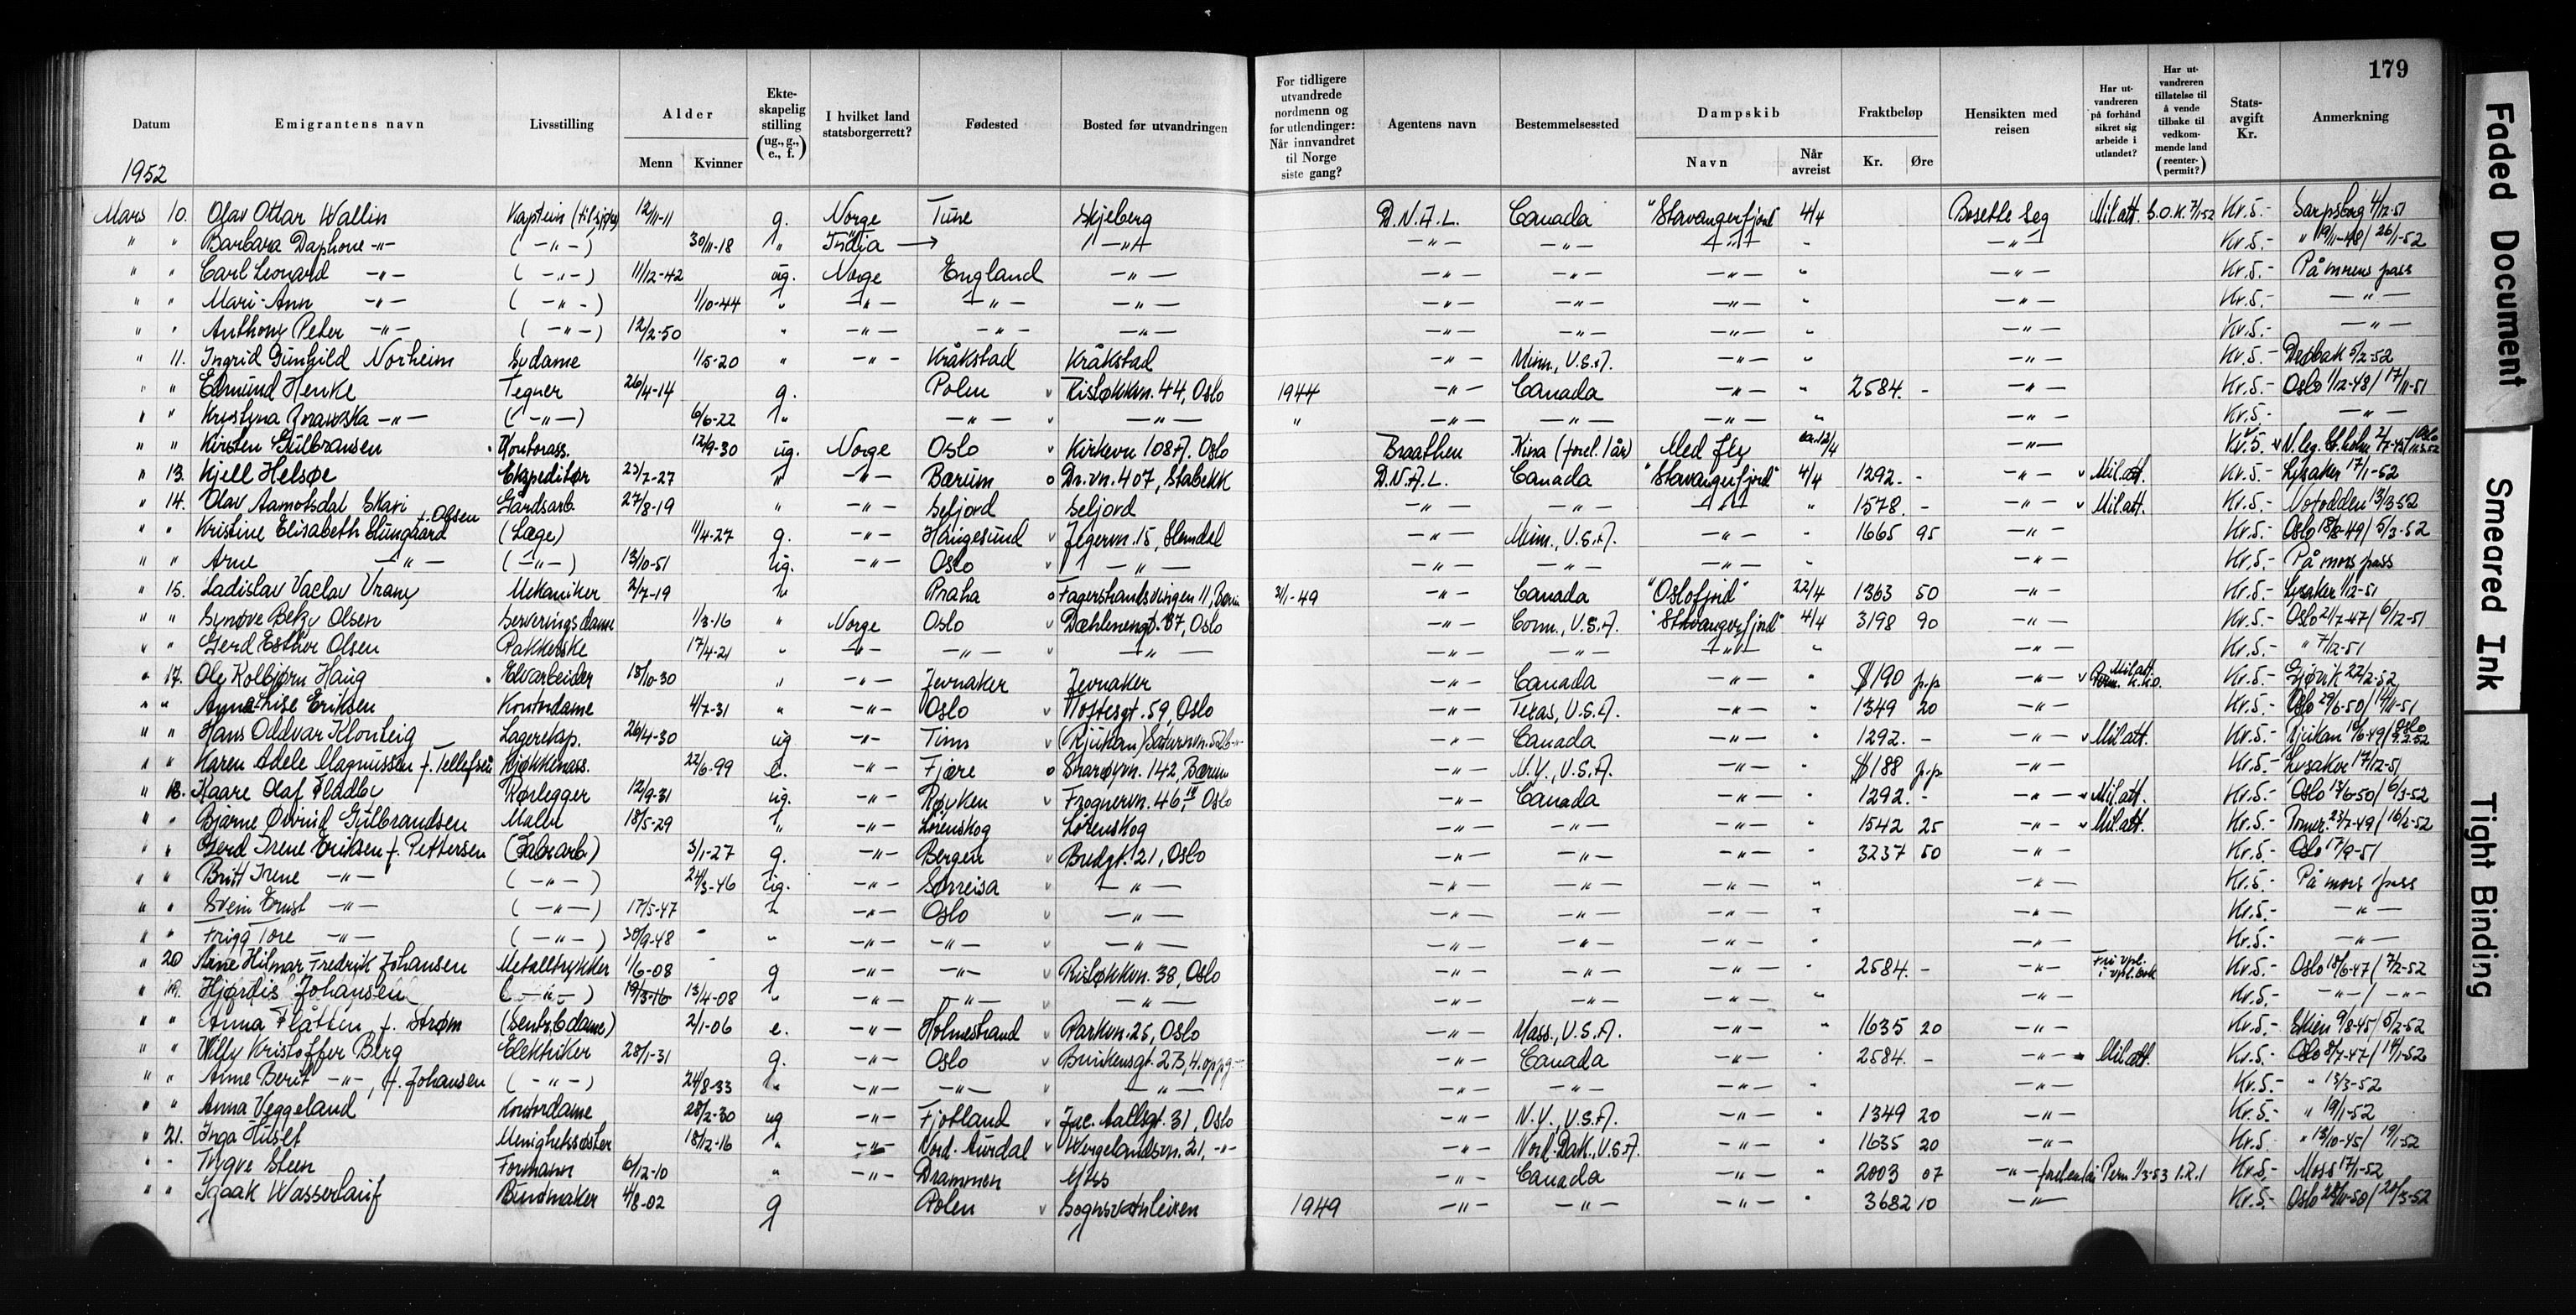 179
Datum | Emigrantens navn | Livsstilling | Alder Menn Kvinner | Ekteskapelig stilling (ug., g., e., f.) | I hvilket land statsborgerrett? | Fødested | Bosted før utvandringen | For tidligere utvandrede nordmenn og for utlendinger: Når innvandret til Norge siste gang? | Agentens navn | Bestemmelsessted | Dampskib Navn Når avreist | Fraktbeløp Kr. Øre | Hensikten med reisen | Har utvandreren på forhånd sikret sig arbeide i utlandet? | Har utvandreren tillatelse til å vende tilbake til vedkommende land (reenterpermit?) | Statsavgift Kr. | Anmerkning
1952
Mars 10. Olav Ottar Wallin Kaptein (til sjøs) 12/11-11 g. Norge Tune Skjeberg D.N.A.L. Canada "Stavangerfjord" 4/4 Bosette seg Mil.att. S.O.K. 7/1-52 Kr.5.- Sarpsborg 4/12-51
" " Barbara Daphone -"- (-"-) 30/11-18 " India → -"- -"- -"- -"- " -"- Kr.5.- " 19/11-48/ 26/1-52
" " Carl Leonard -"- (-"-) 11/12-42 ug. Norge England -"- -"- -"- -"- " -"- Kr.5.- På morens pass
" " Mari-Ann -"- (-"-) 1/10-44 " -"- -"- -"- -"- -"- -"- " -"- Kr.5.- -"-
" " Anthony Peter -"- (-"-) 12/2-50 " -"- -"- -"- -"- -"- -"- " -"- Kr.5.- -"-
" 11. Ingrid Gunhild Norheim Sydame 1/5-20 " -"- Kråkstad Kråkstad -"- Minn., U.S.A. -"- " -"- Kr.5.- Drøbak 5/2-52
" " Edmund Henke Tegner 26/4-14 g. Polen Risløkkvn. 44, Oslo 1944 -"- Canada -"- " 2584. - -"- Kr.5.- Oslo 1/12-48/ 17/11-51
" " Krystyna -"- (-"-) 6/6-22 " -"- -"- " -"- -"- -"- " -"- Kr.5.- -"-
" " Kirsten Gulbransen Kontorass. 12/9-30 ug. Norge Oslo Kirkevn 108A. Oslo Braathen Kina (forel. 1 år) Med fly ca. 12/4 -"- Kr.5.
" 13. Kjell Helsøe Ekspeditør 23/7-27 " -"- Bærum Dr.vn. 407, Stabekk D.N.A.L. Canada "Stavangerfjord" 4/4 1292. - -"- Mil.att. Kr.5.- Lysaker 17/1-52
" 14. Olav Aamotsdal Skari Gårdsarb. 27/8-19 " -"- Seljord Seljord -"- -"- -"- " 1578. - -"- Mil.att. Kr.5.- Notodden 13/3-52
" " Kristine Elisabeth f. Olsen (Læge) 11/4-27 g. -"- Haugesund Jegervn. 15, Slemdal -"- Minn., U.S.A. -"- " 1665 95 -"- Kr.5.- Oslo 18/8-49/ 5/3-52
" " Arne -"- (-"-) 13/10-51 ug. -"- Oslo -"- -"- -"- -"- -"- Kr.5.- På mors pass
" 15. Ladislav Vaclav Vrany Mekaniker 2/7-19 " Praha Fagerstrandsvingen 11, Bærum 2/1-49 -"- Canada "Oslofjord" 22/4 1363 50 -"- Kr.5.- Lysaker 1/12-51
" " Synøve Betzy Olsen Serveringsdame 1/3-16 " Norge Oslo Dæhlenengt. 37, Oslo -"- Conn., U.S.A. "Stavangerfjord" 4/4 3198 90 -"- Kr.5.- Oslo 21/7-47/ 6/12-51
" " Gerd Esther Olsen Pakkerske 17/4-21 " -"- -"- -"- -"- -"- -"- " -"- Kr.5.- " 7/12-51
" 17. Ole Kolbjørn Haug Elvarbeider 18/10-30 " -"- Jevnaker Jevnaker -"- Canada -"- " $190 p.p -"- Mil.att. Kr.5.- Gjøvik 22/2-52
" " Anna-Lise Eriksen Kontordame 4/7-31 " -"- Oslo Toftesgt. 59, Oslo -"- Texas, U.S.A. -"- " 1349 20 -"- Kr.5.- Oslo 29/6-50/ 14/11-51
" " Hans Oddvar Klonteig Lagereksp. 26/4-30 ug -"- Tinn (Rjukan) -"- Canada -"- " 1292. - -"- Mil.att. Kr.5.- Rjukan 18/6-49/ Oslo
" " Karen Adele Magnussen f. Tellefsen Kjøkkenass. 22/6-99 e. -"- Fjære Snarøyvn. 142, Bærum -"- N.Y., U.S.A. -"- " $188 p.p -"- Kr.5.- Lysaker 17/12-51
" 18. Kaare Olaf Fladby Rørlegger 12/9-31 ug. -"- Røyken Frognervn. 46, Oslo -"- Canada -"- " 1292. - -"- Mil.att. Kr.5.- Oslo 13/6-50/ 6/3-52
" " Bjarne Øivind Gulbrandsen Maler 18/5-29 " -"- Lørenskog Lørenskog -"- -"- -"- " 1542 25 -"- Mil.att. Kr.5.- 23/7-49/ 16/2-52
" " Gerd Irene Eriksen f. Pettersen (Fabr.arb) 3/1-27 g. -"- Bergen Bredgt. 21, Oslo -"- -"- -"- " 3237 50 -"- Kr.5.- Oslo 17/9-51
" " Britt Irene -"- (-"-) 24/3-46 ug. -"- Sørreisa -"- -"- -"- -"- " -"- Kr.5.- På mors pass
" " Svein Ernst -"- (-"-) 17/5-47 " -"- Oslo -"- -"- -"- -"- " -"- Kr.5.- -"-
" " Frigg Tore -"- (-"-) 30/9-48 " -"- -"- -"- -"- -"- -"- " -"- Kr.5.- -"-
" 20 Arne Hilmar Fredrik Johansen Metalltrykker 1/6-08 g -"- -"- Risløkkvn. 38, Oslo -"- -"- -"- " 2584. - -"- Kr.5.- Oslo 18/6-47/ 7/2-52
" 19. Hjørdis Johansen (-"-) 13/4-08 " -"- -"- -"- -"- -"- -"- " -"- Kr.5.- -"-/ -"-
" " Anna Flåtten f. Strøm 2/1-06 e. -"- Holmestrand Parkvn. 25, Oslo -"- Mass., U.S.A. -"- " 1635 20 -"- Kr.5.- Skien 9/8-45/ 5/2-52
" " Willy Kristoffer Berg Elektriker 28/1-31 g. -"- Oslo Birkensgt. 2B, 4. oppg. -"- Canada -"- " 2584. - -"- Mil.att. Kr.5.- Oslo
" " Anne Berit -"-, f. Johansen (-"-) 24/8-33 " -"- -"- -"- -"- -"- -"- " -"- Kr.5.- " 13/3-52
" " Anna Veggeland Kontordame 28/2-30 ug -"- Fjotland Jac. Aallsgt. 31, Oslo -"- N.Y., U.S.A. -"- " 1349 20 -"- Kr.5.- " 19/1-52
" 21. Inga Hilset Menighetssøster 18/12-16 " -"- Nord-Aurdal Wergelandsvn. 21, -"- -"- Nord-Dak., U.S.A. -"- " 1635 20 -"- Kr.5 " 13/10-45/ 19/1-52
" " Trygve Steen Formann 6/12-10 " -"- Drammen Moss -"- Canada -"- " 2003 07 -"- Kr.5.- Moss 17/1-52
" " Isaak Wasserlauf Buntmaker 4/8-02 g Polen Sognsvannleiren 1949 -"- -"- -"- " 3682 10 -"- Kr.5.- Oslo 28/11-50/ 20/3-52
Faded Document
Smeared Ink
Tight Binding